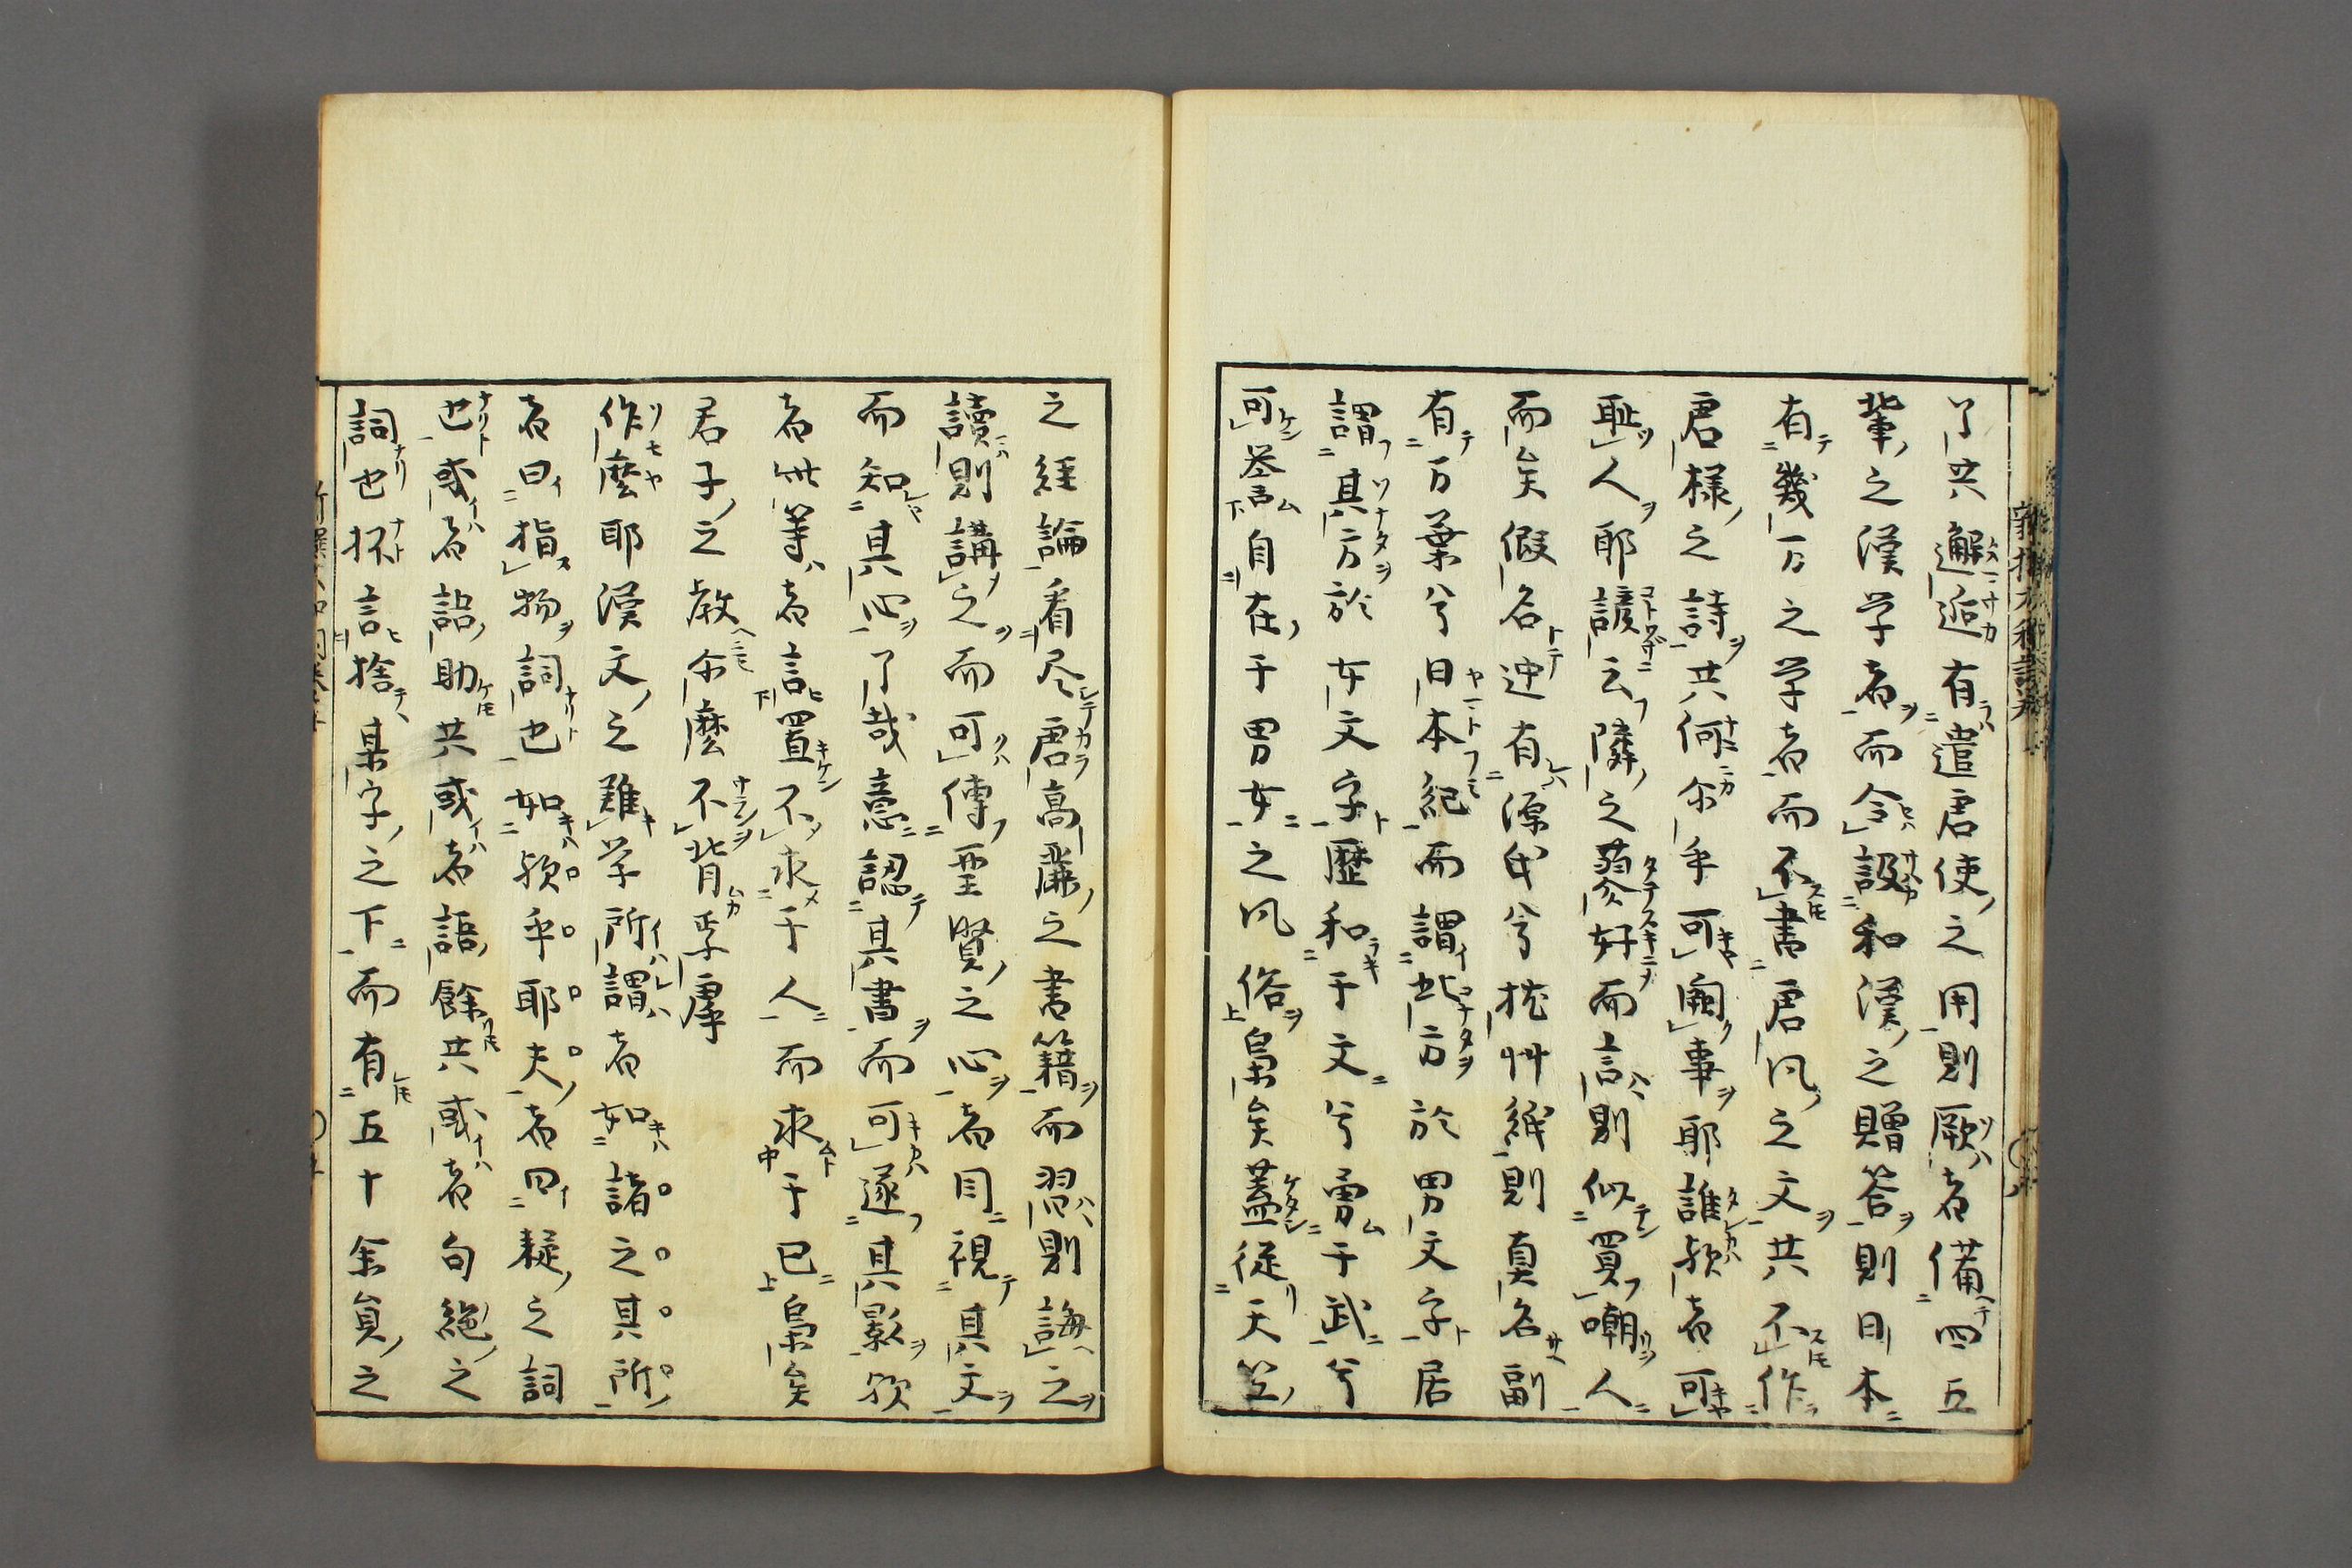 了共邂逅有遣唐使之用則厥者備四五
輩之漢学者而令設和漢之贈答則日本
有幾万之学者而不書唐風之文共不作
唐様之詩共何尓乎可闕事耶誰欤者可
耻人耶諺云隣之蓼好而言則似買嘲人
而矣假名迚有源氏兮枕艸纸則真名副
有万葉兮日本紀而謂此方於男文字居
謂其方於女文字歴和于文兮勇于武兮
可誉自在于男女之风俗烏矣蓋従天竺
之経論看尽唐高麗之書籍而習則誨之
讀則講之而可傳聖賢之心者目視其文
而知其心了哉意認其書而可遂其影欤
者此等者言置不求于人而求于己烏矣
君子之教尓麼不背乎摩
作麼耶漢文之難学所謂者如諸之其所
者曰指物詞也如欤乎耶夫者曰疑之詞
也或者詔助共或者語餘共或者句絶之
詞也抔言捨某字之下而有五十余員之